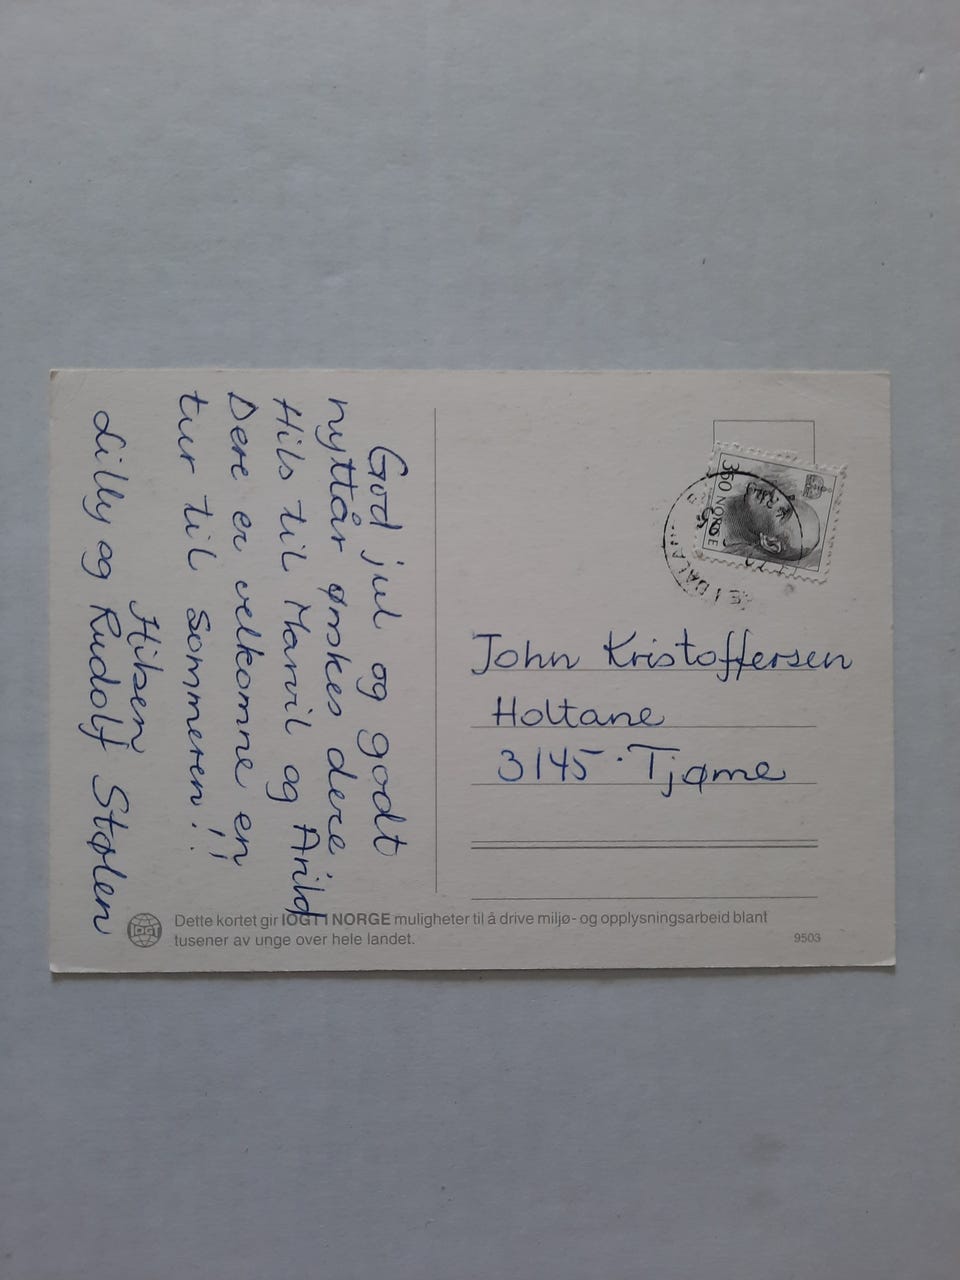 God jul og godt
nyttår ønskes dere
Hils til Marvil og Arild
Dere er velkomne en
tur til sommeren!!
Hilsen
Lilly og Rudolf Stølen
350 NORGE
John Kristoffersen
Holtane
3145 · Tjøme
Dette kortet gir IOGT I NORGE muligheter til å drive miljø- og opplysningsarbeid blant
tusener av unge over hele landet.
9503